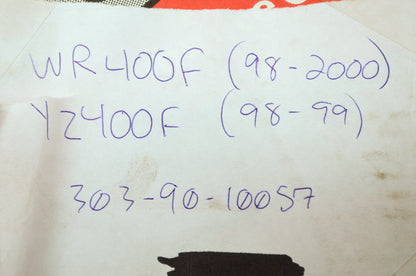 WR400F (98-2000)
YZ400F (98-99)
303-90-10057